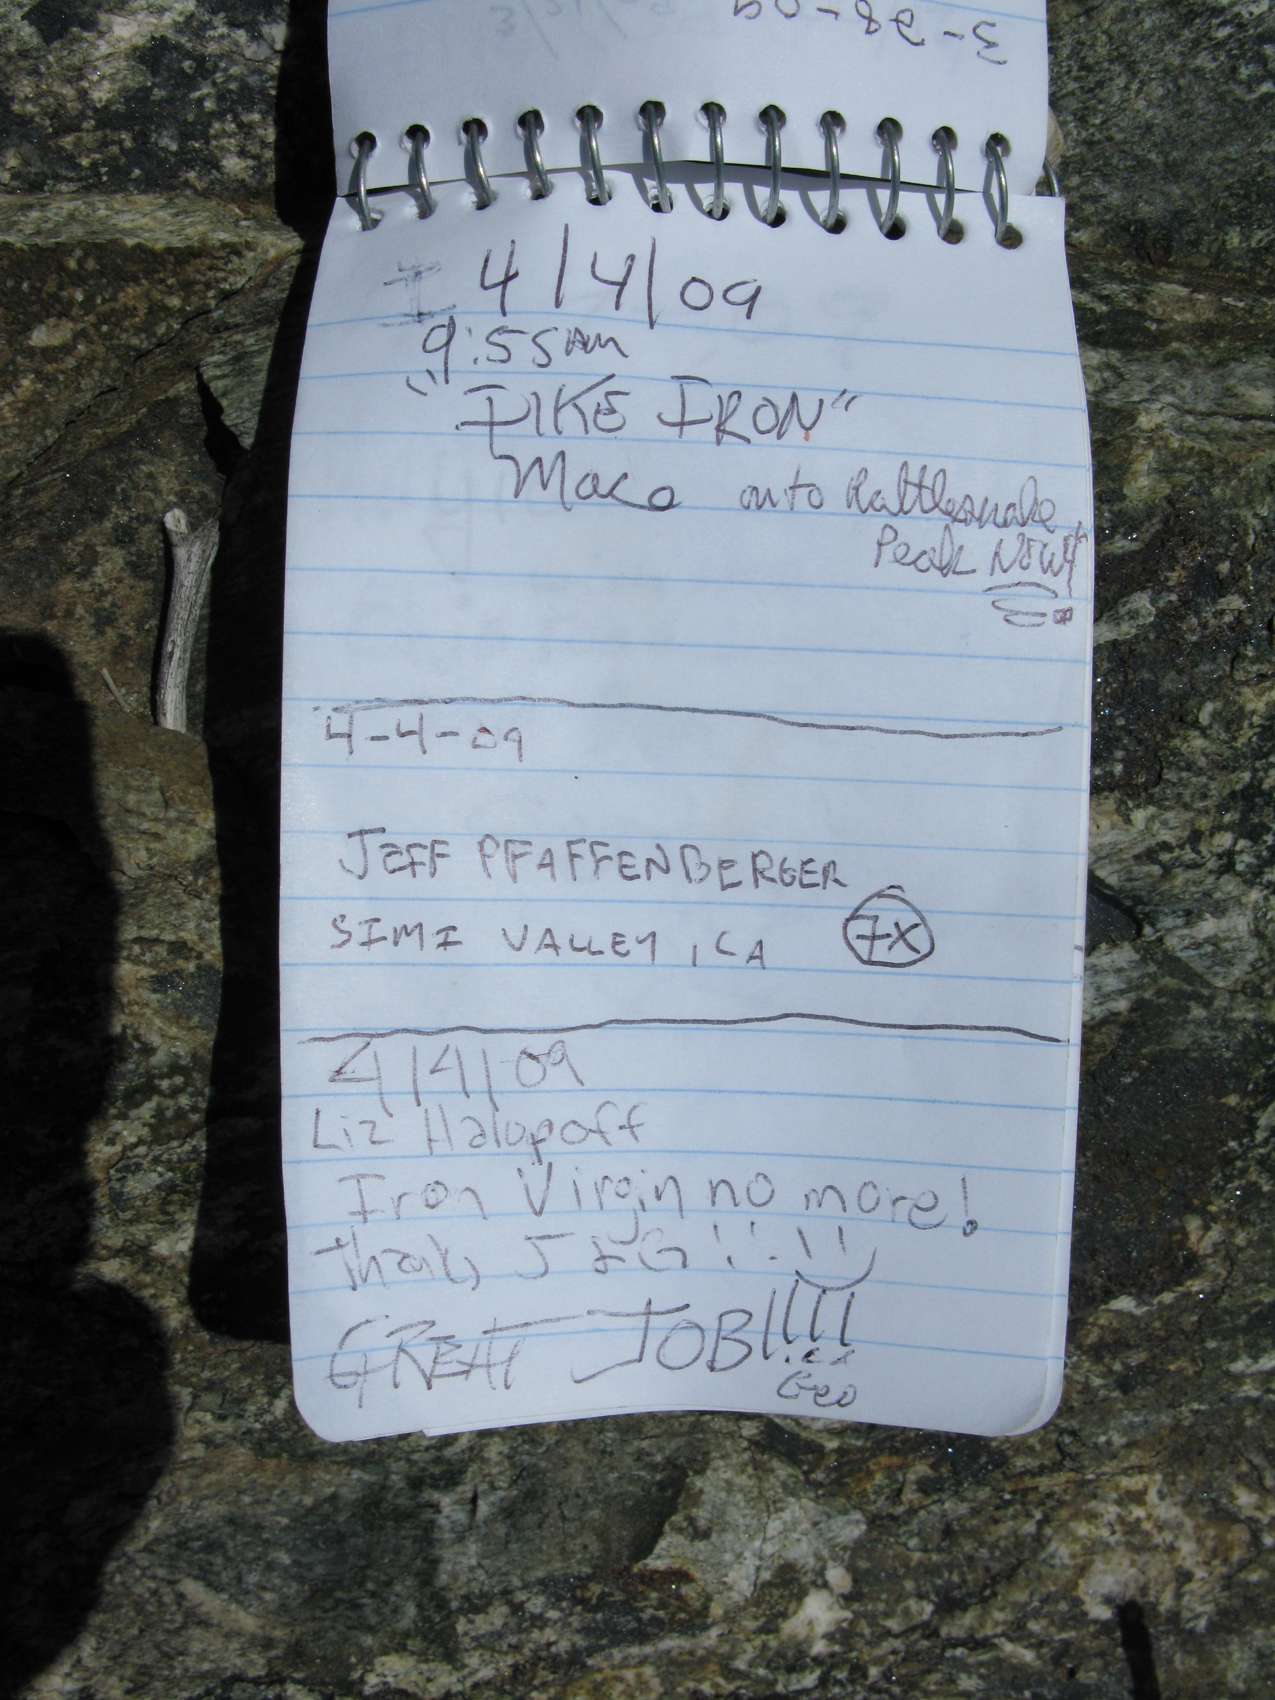 3-28-09
I 4/4/09
9:55am
"IIKE IRON"
onto Rattlesnake
Peak NOW!
4-4-09
JEFF PFAFFENBERGER
SIMI VALLEY, CA 7X
4/4/09
Liz Halopoff
Iron Virgin no more!
Thanks J & G!!
GREAT JOB!!!!
Geo